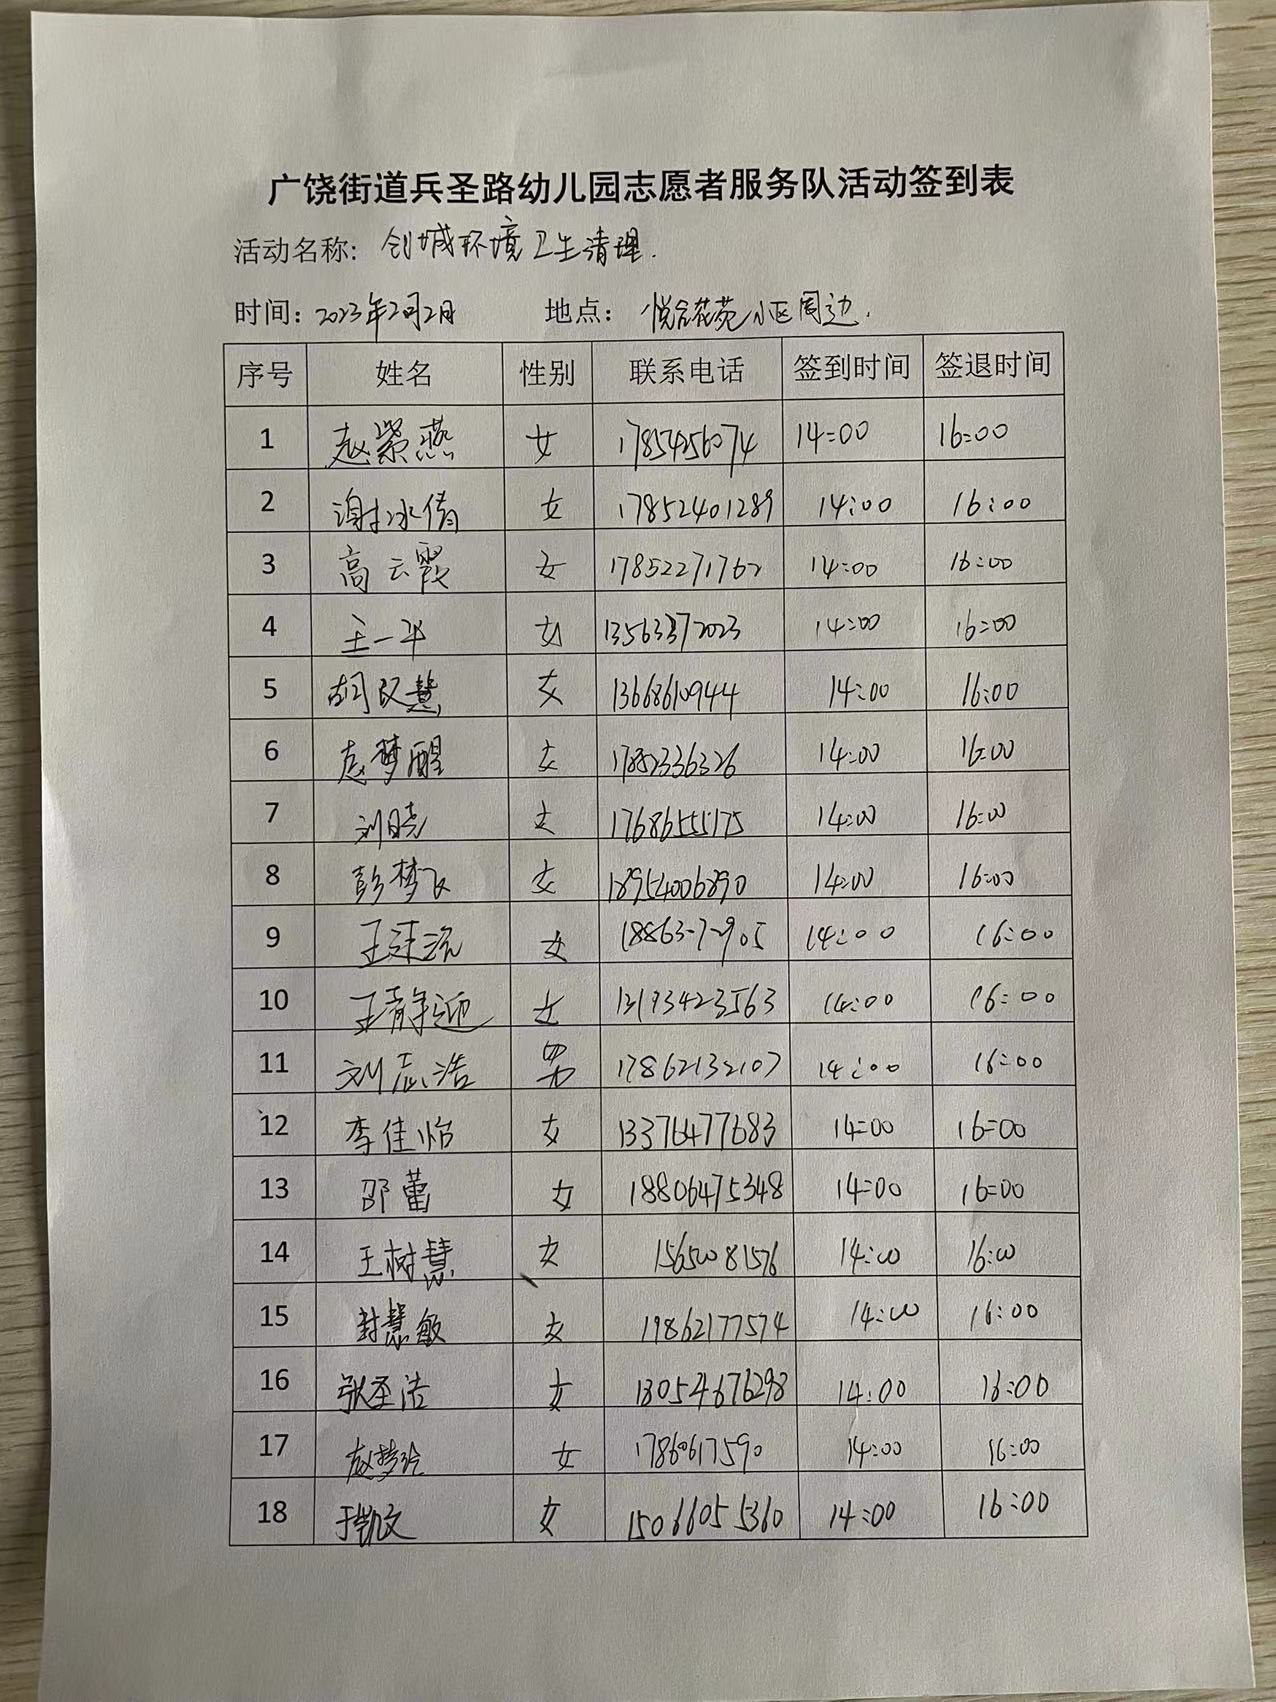 广饶街道兵圣路幼儿园志愿者服务队活动签到表
活动名称: 创城环境卫生清理.
时间: 2023年2月2日 地点: 悦合花苑小区周边.
序号 姓名 性别 联系电话 签到时间 签退时间
1 赵紫燕 女 17854256074 14:00 16:00
2 谢冰倩 女 17852401289 14:00 16:00
3 高云霞 女 17852271762 14:00 16:00
4 王一平 女 13563372023 14:00 16:00
5 胡文慧 女 13668610944 14:00 16:00
6 赵梦醒 女 17852336326 14:00 16:00
7 刘晓 女 17686555175 14:00 16:00
8 彭梦飞 女 18954006890 14:00 16:00
9 女 14:00 16:00
10 王静 女 13193423563 14:00 16:00
11 刘志浩 男 17862132107 14:00 16:00
12 李佳怡 女 13376477683 14:00 16:00
13 邵蕾 女 18806475348 14:00 16:00
14 王树慧 女 15650081576 14:00 16:00
15 封慧敏 女 19862177574 14:00 16:00
16 张圣洁 女 13054676298 14:00 16:00
17 赵梦玲 女 17860617590 14:00 16:00
18 于凯文 女 15066055360 14:00 16:00